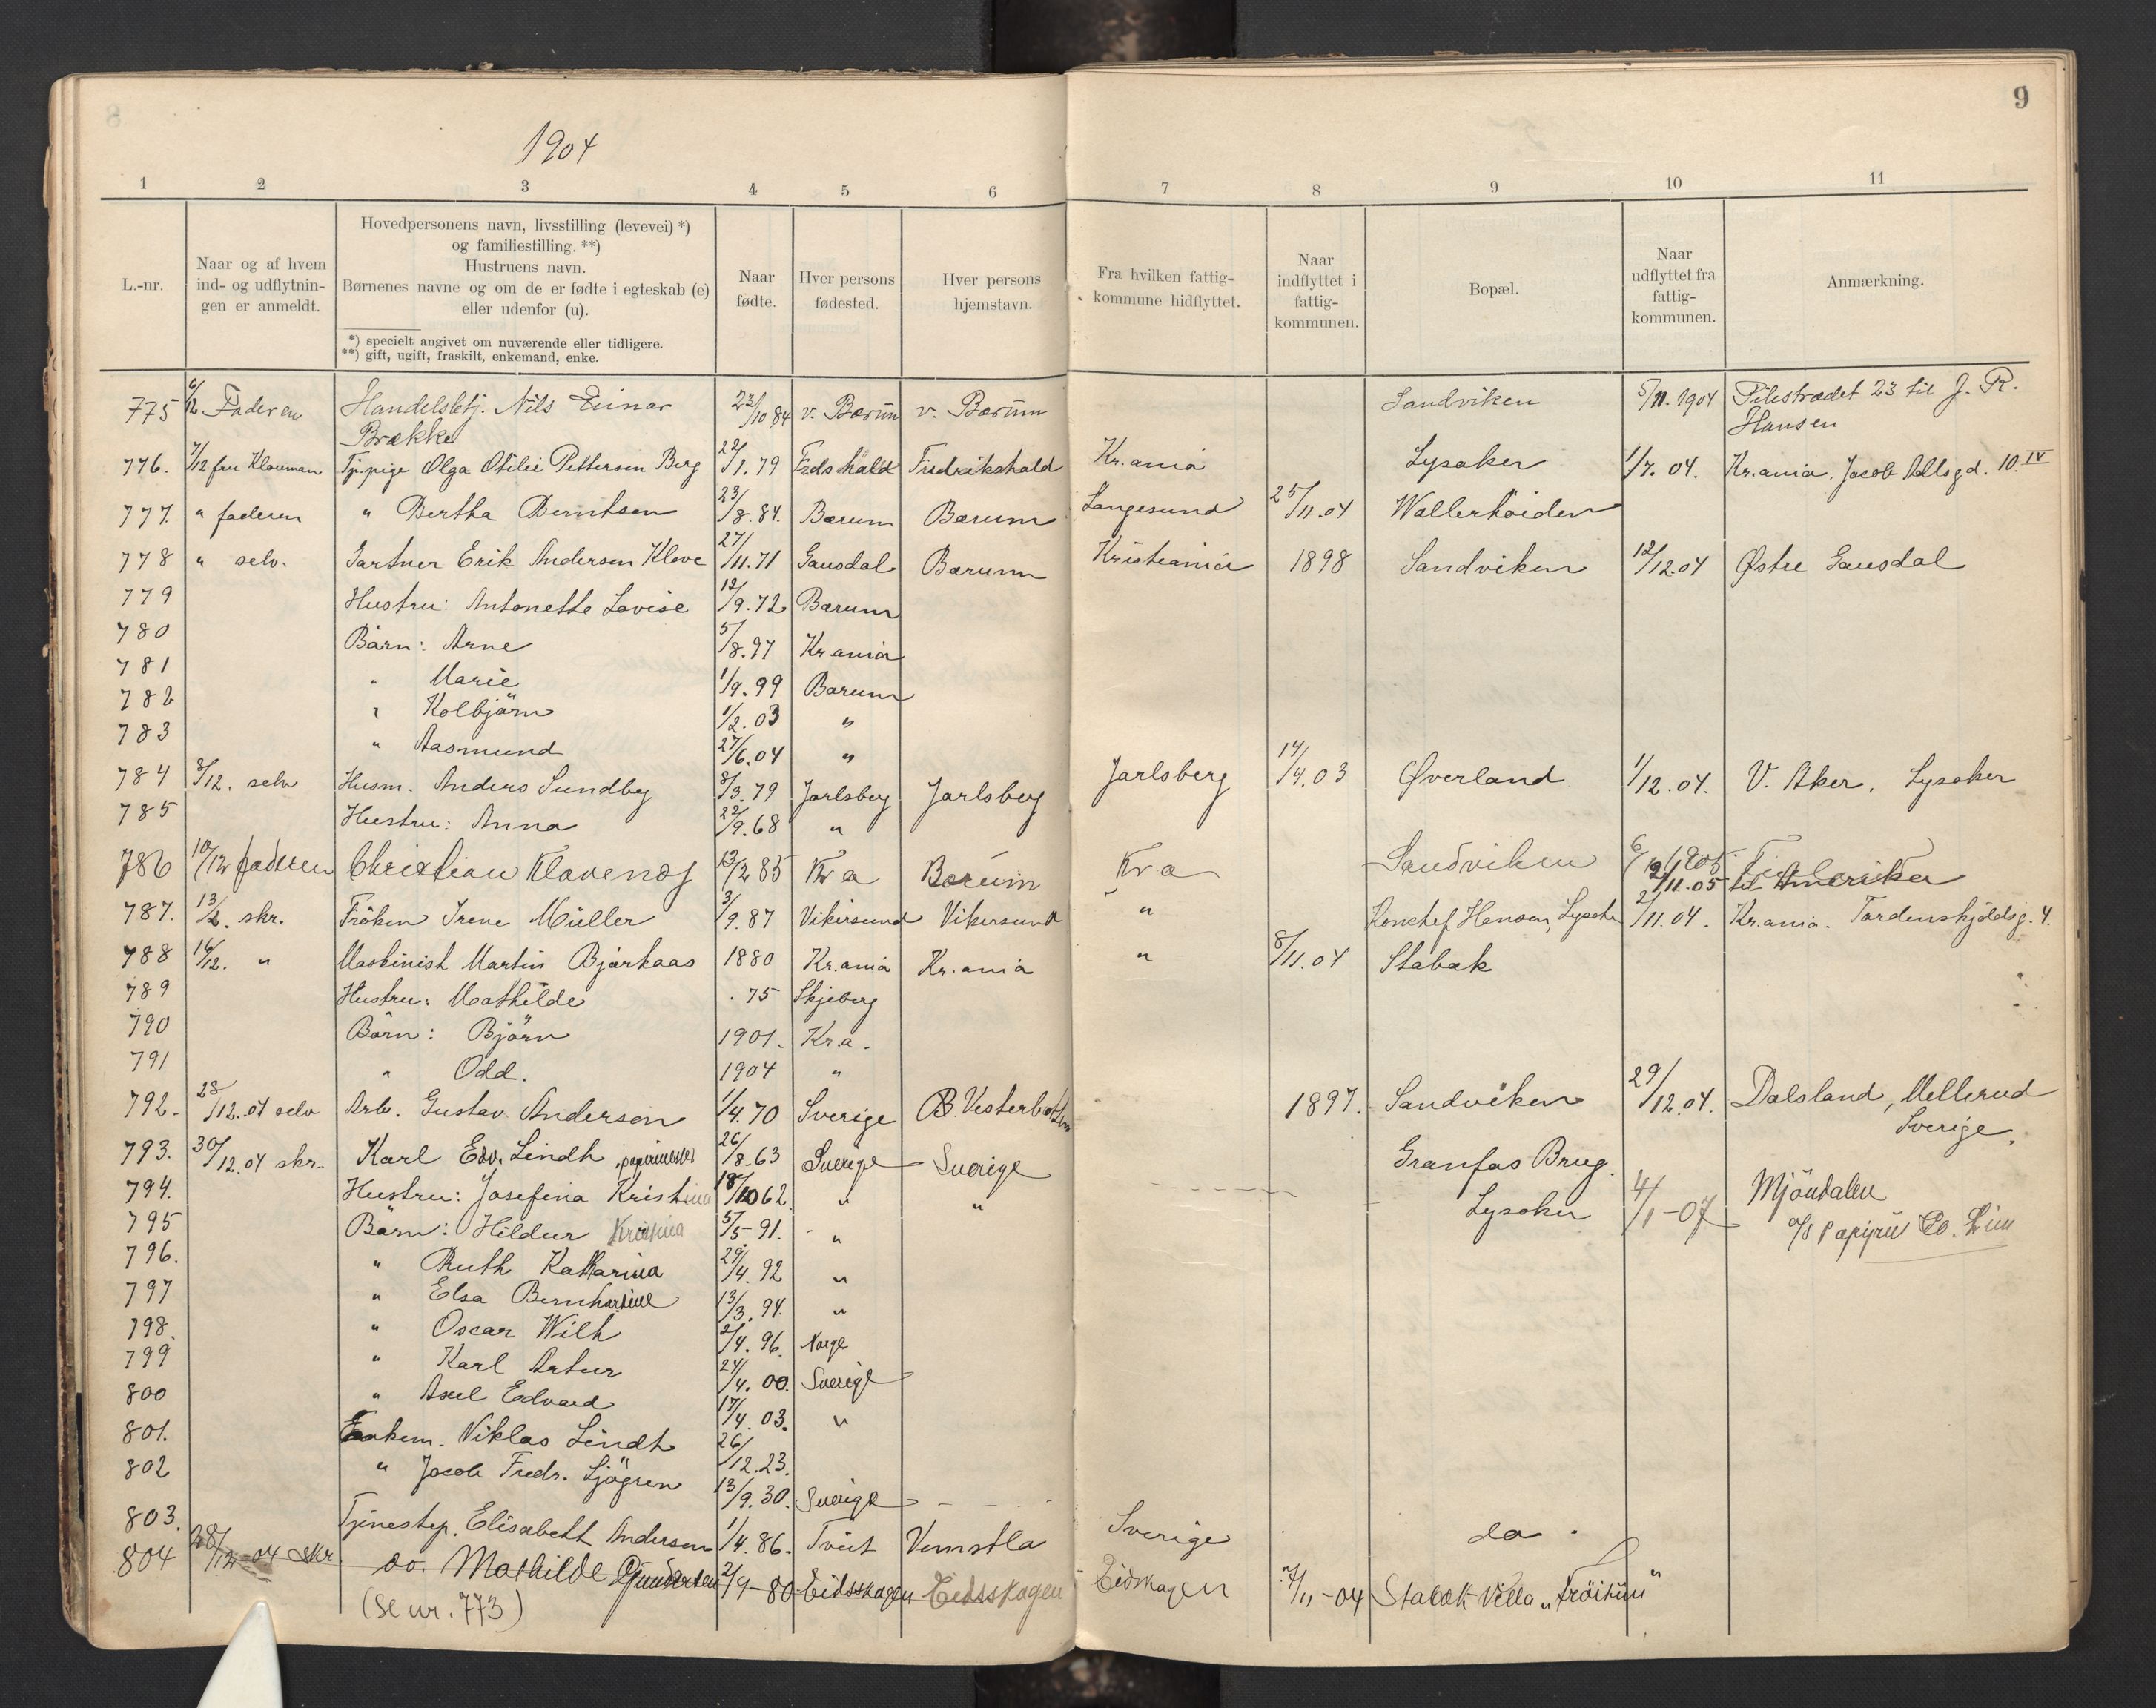 8
9
1904
1 2 3 4 5 6 7 8 9 10 11
L.-nr.
Naar og af hvem
ind- og udflytnin-
gen er anmeldt.
Hovedpersonens navn, livsstilling (levevei) *)
og familiestilling. **)
Hustruens navn.
Børnenes navne og om de er fødte i egteskab (e)
eller udenfor (u).
*) specielt angivet om nuværende eller tidligere.
**) gift, ugift, fraskilt, enkemand, enke.
Naar
fødte.
Hver persons
fødested.
Hver persons
hjemstavn.
Fra hvilken fattig-
kommune hidflyttet.
Naar
indflyttet i
fattig-
kommunen.
Bopæl.
Naar
udflyttet fra
fattig-
kommunen.
Anmærkning.
775 6/12 Faderen Handelsbetj. Nils Einar 23/10 84 v. Bærum v. Bærum Sandviken 5/11. 1904 Pilestrædet 23 til J. R.
Brække Hansen
776. 7/12 fru Klouman Tj.pige Olga Otilie Pettersen Berg 22/1. 79 Fredshald Fredrikshald Kr.ania Lysaker 1/7. 04. Kr.ania. Jacob Aallsgd. 10. IV
777. " faderen " Bertha Berntsen 23/8. 84. Bærum Bærum Langesund 25/11.04 Wallerhöiden
778 " selv. Gartner Erik Andersen Klove 27/11.71 Gausdal Bærum Kristiania 1898 Sandviken 12/12.04 Østre Gausdal
779 Hustru: Antonette Lovise 12/9.72 Bærum
780 Börn: Arne 5/8.97 Kr ania
781 " Marie 1/9.99 Bærum
782 " Kolbjörn 1/2.03 "
783 " Aasmund 27/6.04 "
784 8/12. selv Husm. Anders Sundby 8/3.79 Jarlsberg Jarlsberg Jarlsberg 14/4.03 Øverland 1/12.04. V. Aker, Lysaker
785 Hustru: Anna 22/9.68 "
786 10/12 faderen Christian Klavenæs 13/2 85 Kr a Bærum Kr a Sandviken 2/11.05 til Amerika
787. 13/2. skr. Fröken Irene Müller 3/9.87 Vikersund Vikersund " Hansen, Lysaker 2/11.04. Kr.ania. Tordenskjoldsg. 4.
788 14/12. " Maskinist Martin Bjarkaas 1880 Kr.ania Kr.ania " 8/11.04 Stabæk
789 Hustru: Mathilde . 75 Skjeberg
790 Börn: Björn 1901. Kr.a.
791 " Odd. 1904 "
792. 28/12.04 selv Arb. Gustav Anderson 1/4.70 Sverige B. Vesterbotten 1897. Sandviken 29/12.04. Dalsland, Mellerud
Sverige.
793. 30/12.04 skr. Karl Edv. Lindh, papirmester 26/8.63 Sverige Sverige Granfos Brug.
794. Hustru: Josefina Kristina 18/10 62. " " Lysaker 4/1-07 Mjöndalen
795 Börn: Hildur Kristina 5/5-91. " A/S Papyrü Co. Lim
796. " Ruth Katharina 29/4.92 "
797 " Elsa Bernhardine 13/3.94. "
798. " Oscar Wilh 2/4.96. Norge
799 " Karl Artur 24/4.00. Sverige
800 " Axel Edvard 17/4.03. "
801. Enkem. Niklas Lindh 26/12.23.
802 " Jacob Fredr. Sjögren 13/9.30. Sverige
803. Tjenestep. Elisabeth Andersen 1/4.86. Tveit Vemstla Sverige do.
804 28/12-04 skr do. Mathilde Gundersen 2/9-80 Eidsskogen Eidsskogen Eidskogen 7/11-04 Stabæk Villa "Fröihim"
(se nr. 773)